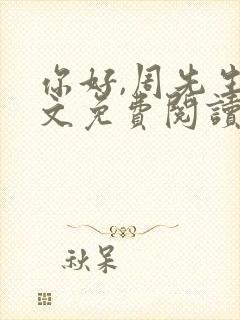 你好,周先生
文免費閱讀
秋呆